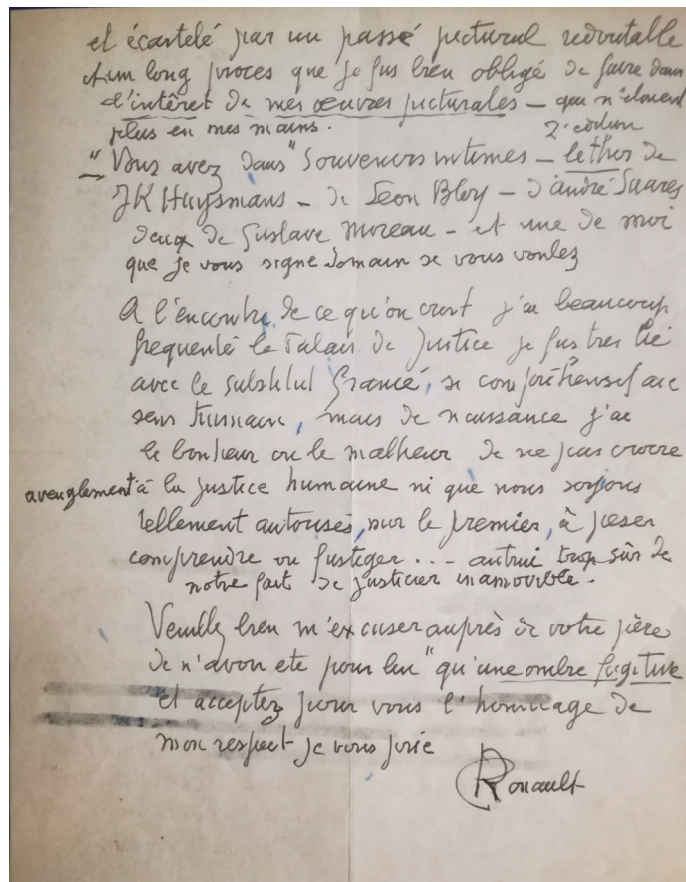 et écartelé par un passé pictural redoutable
d'un long proces que je fus bien obligé de faire dans
l'intérêt de mes œuvres picturales – qui n'étaient
plus en mes mains.
2e édition
" Vous avez dans " Souvenirs intimes – lettres de
JK Huysmans – de Léon Bloy – d'andré Suares
deux de Gustave Moreau – et une de moi
que je vous signe demain se vous voulez
A l'encontre de ce qu'on croit j'ai beaucoup
frequenté le Palais de Justice je fus tres lié
avec le substitut Granié, si compréhensif au
sens humain, mais de naissance j'ai
le bonheur ou le malheur de ne pas croire
aveuglement à la justice humaine ni que nous soyons
tellement autorisés, moi le premier, à peser
comprendre ou fustiger ... – autrui trop sûr de
notre fait de justicier inamovible.
Veuillez bien m'excuser auprès de votre père
de n'avoir ete pour lui " qu'une ombre fugitive
et acceptez pour vous l'hommage de
mon respect je vous prie
GRouault